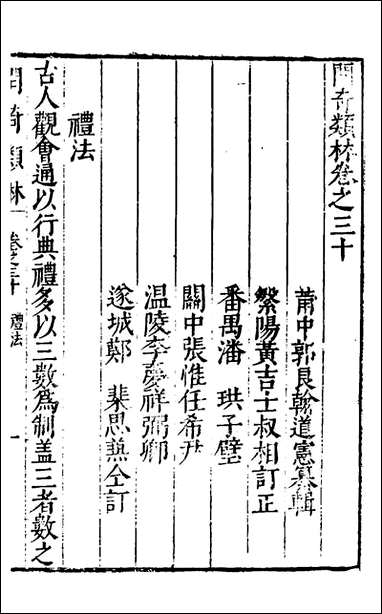 問奇類林卷之三十
莆中郭良翰道憲纂輯
縈陽黃吉士叔相訂正
番禺潘珙子璧
關中張惟任希尹
温陵李慶祥弼卿
遂城鄭棐思㷱仝訂
禮法
古人觀會通以行典禮多以三數爲制盖三者數之
問奇類林 卷之三十 禮法 一